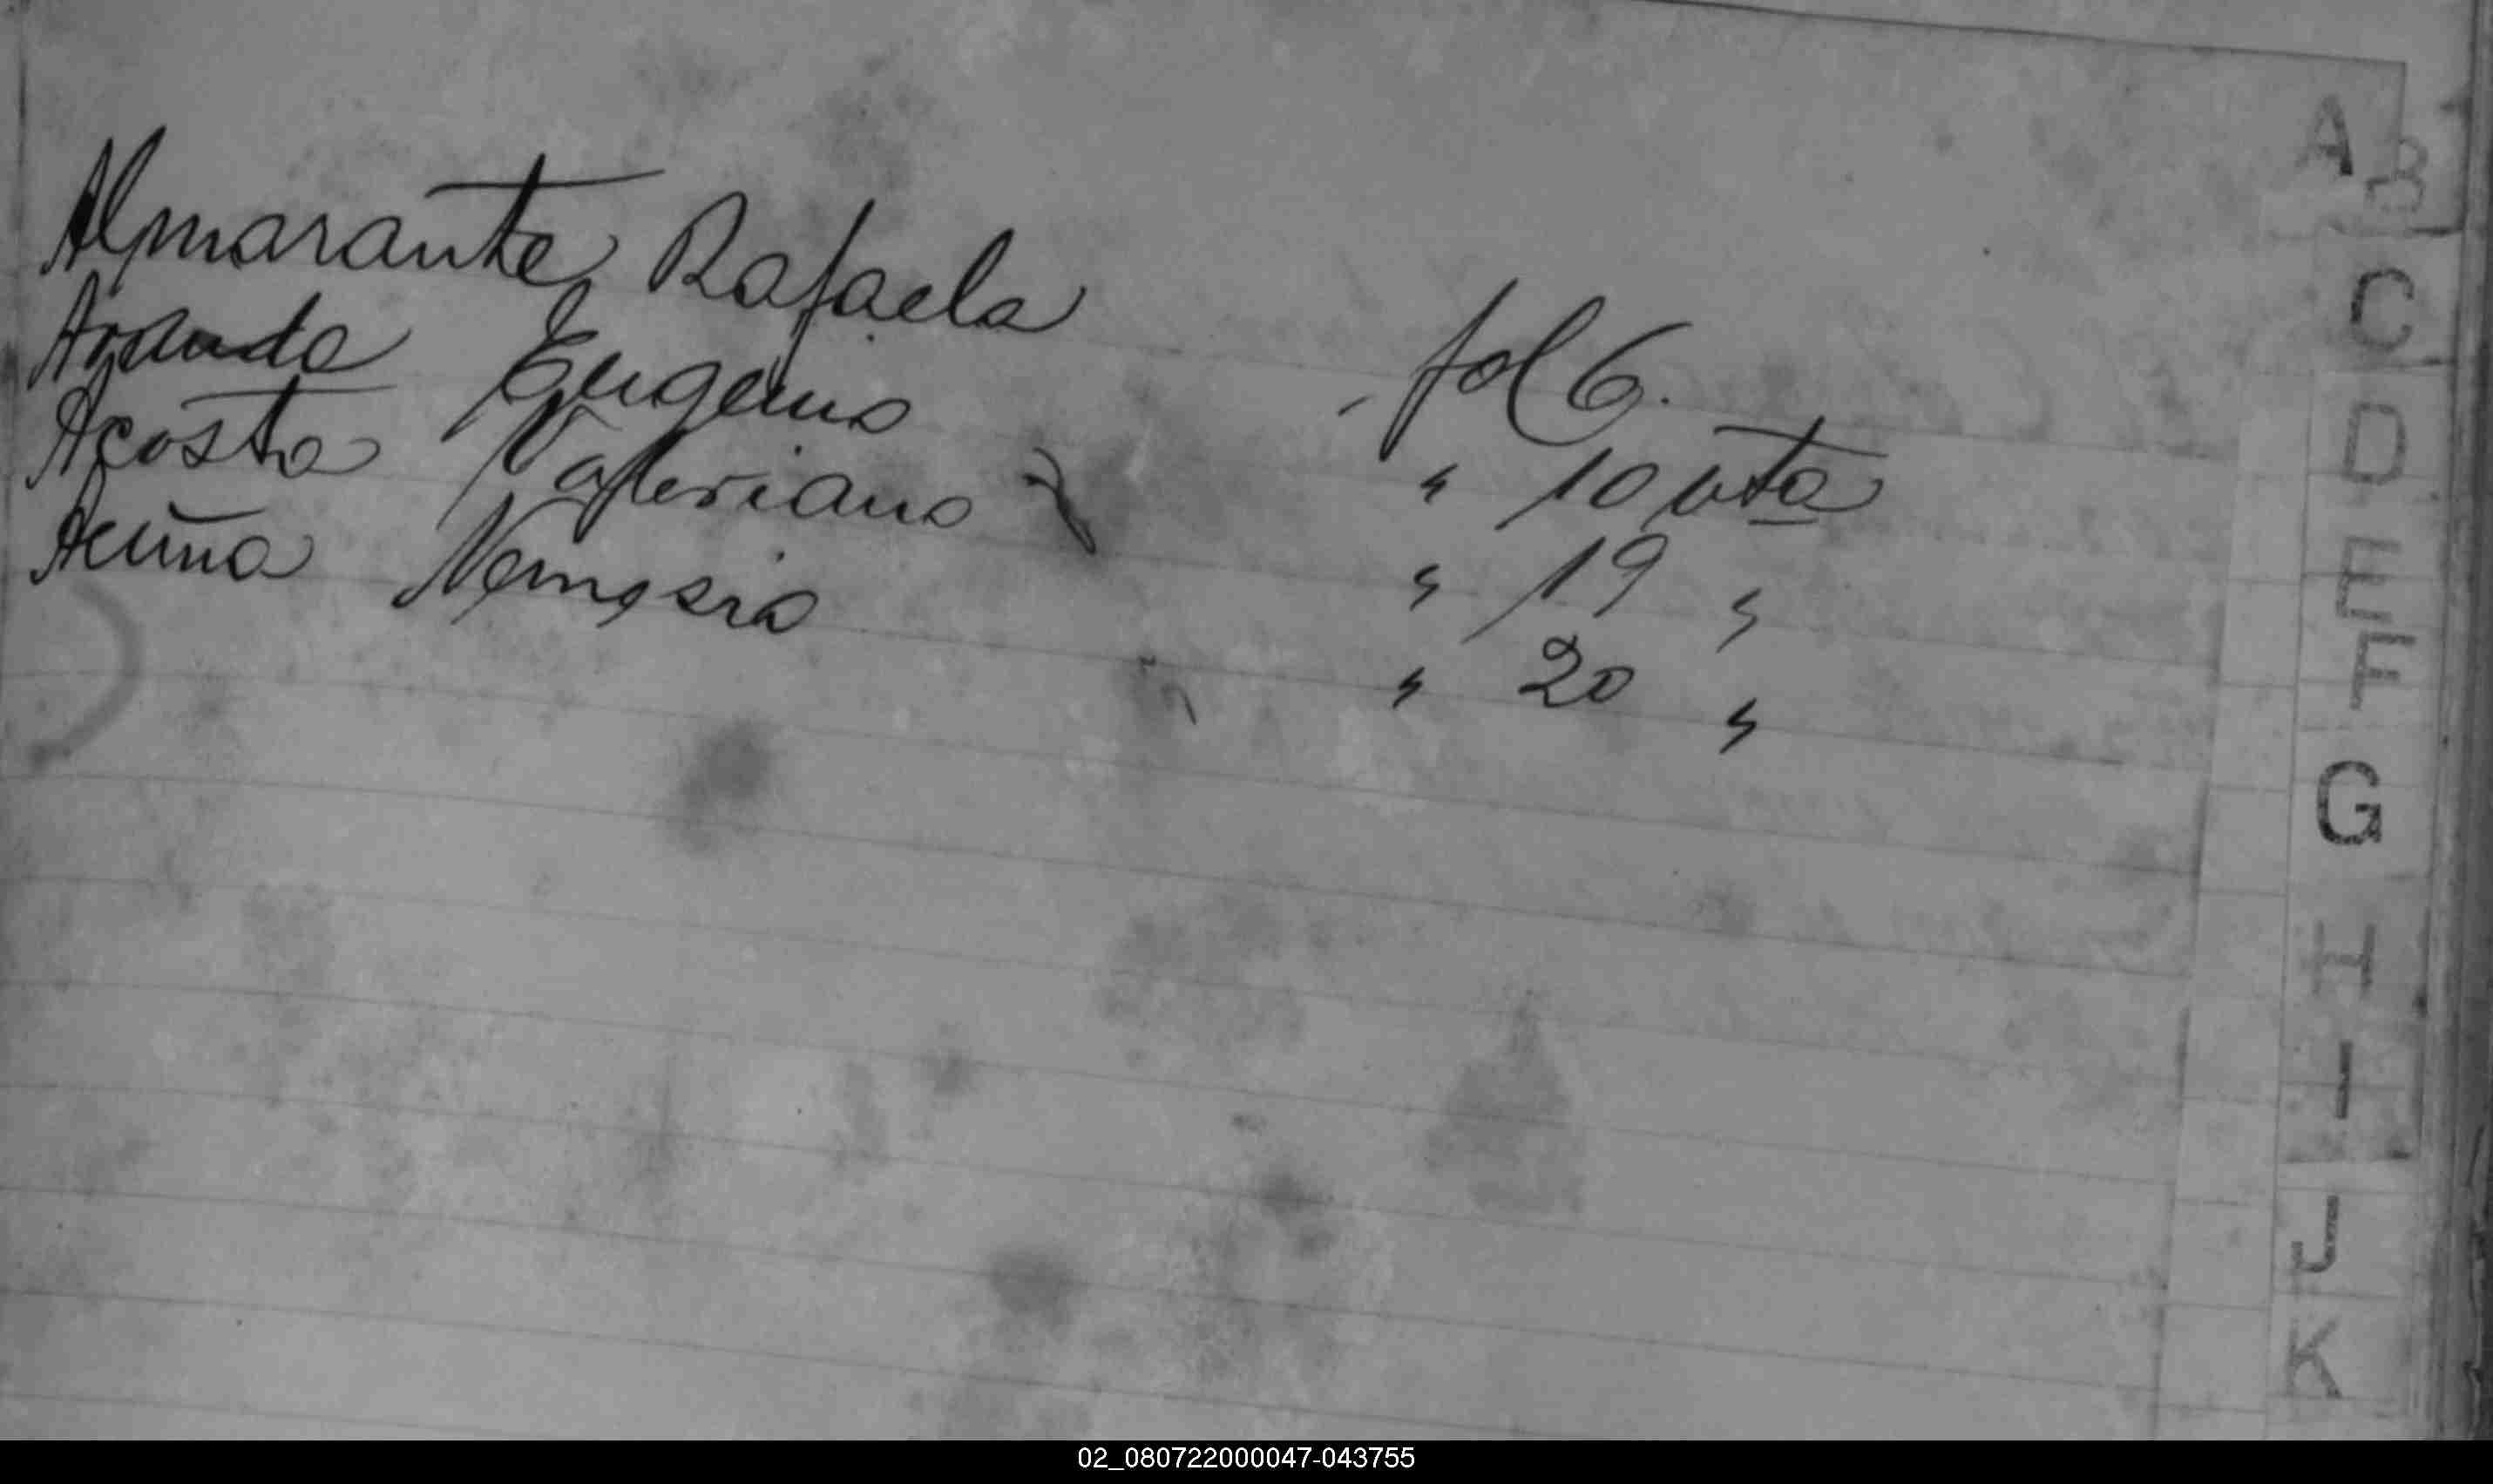 Almarante Rafaela fol 6.
Aranda Eugenio " 10 vta
Acosta Valeriano " 19 "
Acuña Nemesio " 20 "
A
B
C
D
E
F
G
H
I
J
K
02_080722000047-043755